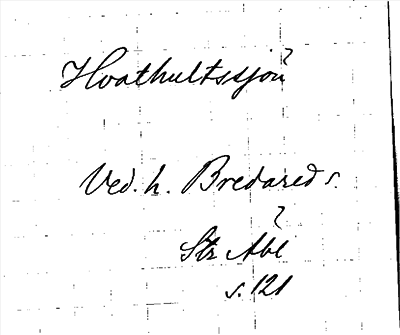 Hvathultssjön?
Ved. h. Bredareds.
?
Str Abl
s. 121